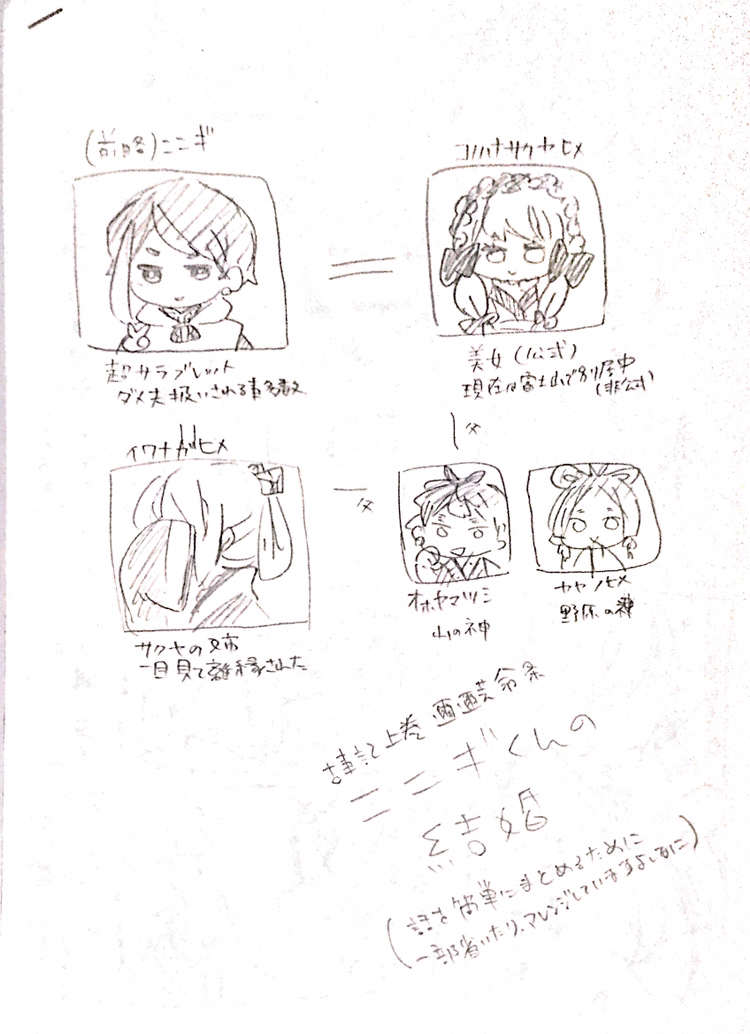 (前略)ニニギ
コノハナサクヤヒメ
超サラブレット
ダメ夫扱いされる事多数
美女(公式)
現在は富士山で別居中
(非公式)
父
イワナガヒメ
父
サクヤの姉
一目見て離縁された
オホヤマツミ
山の神
カヤノヒメ
野原の神
古事記上巻
ニニギくんの
結婚
(話を簡単にまとめるために
一部省いたり、アレンジしていますよしなに)